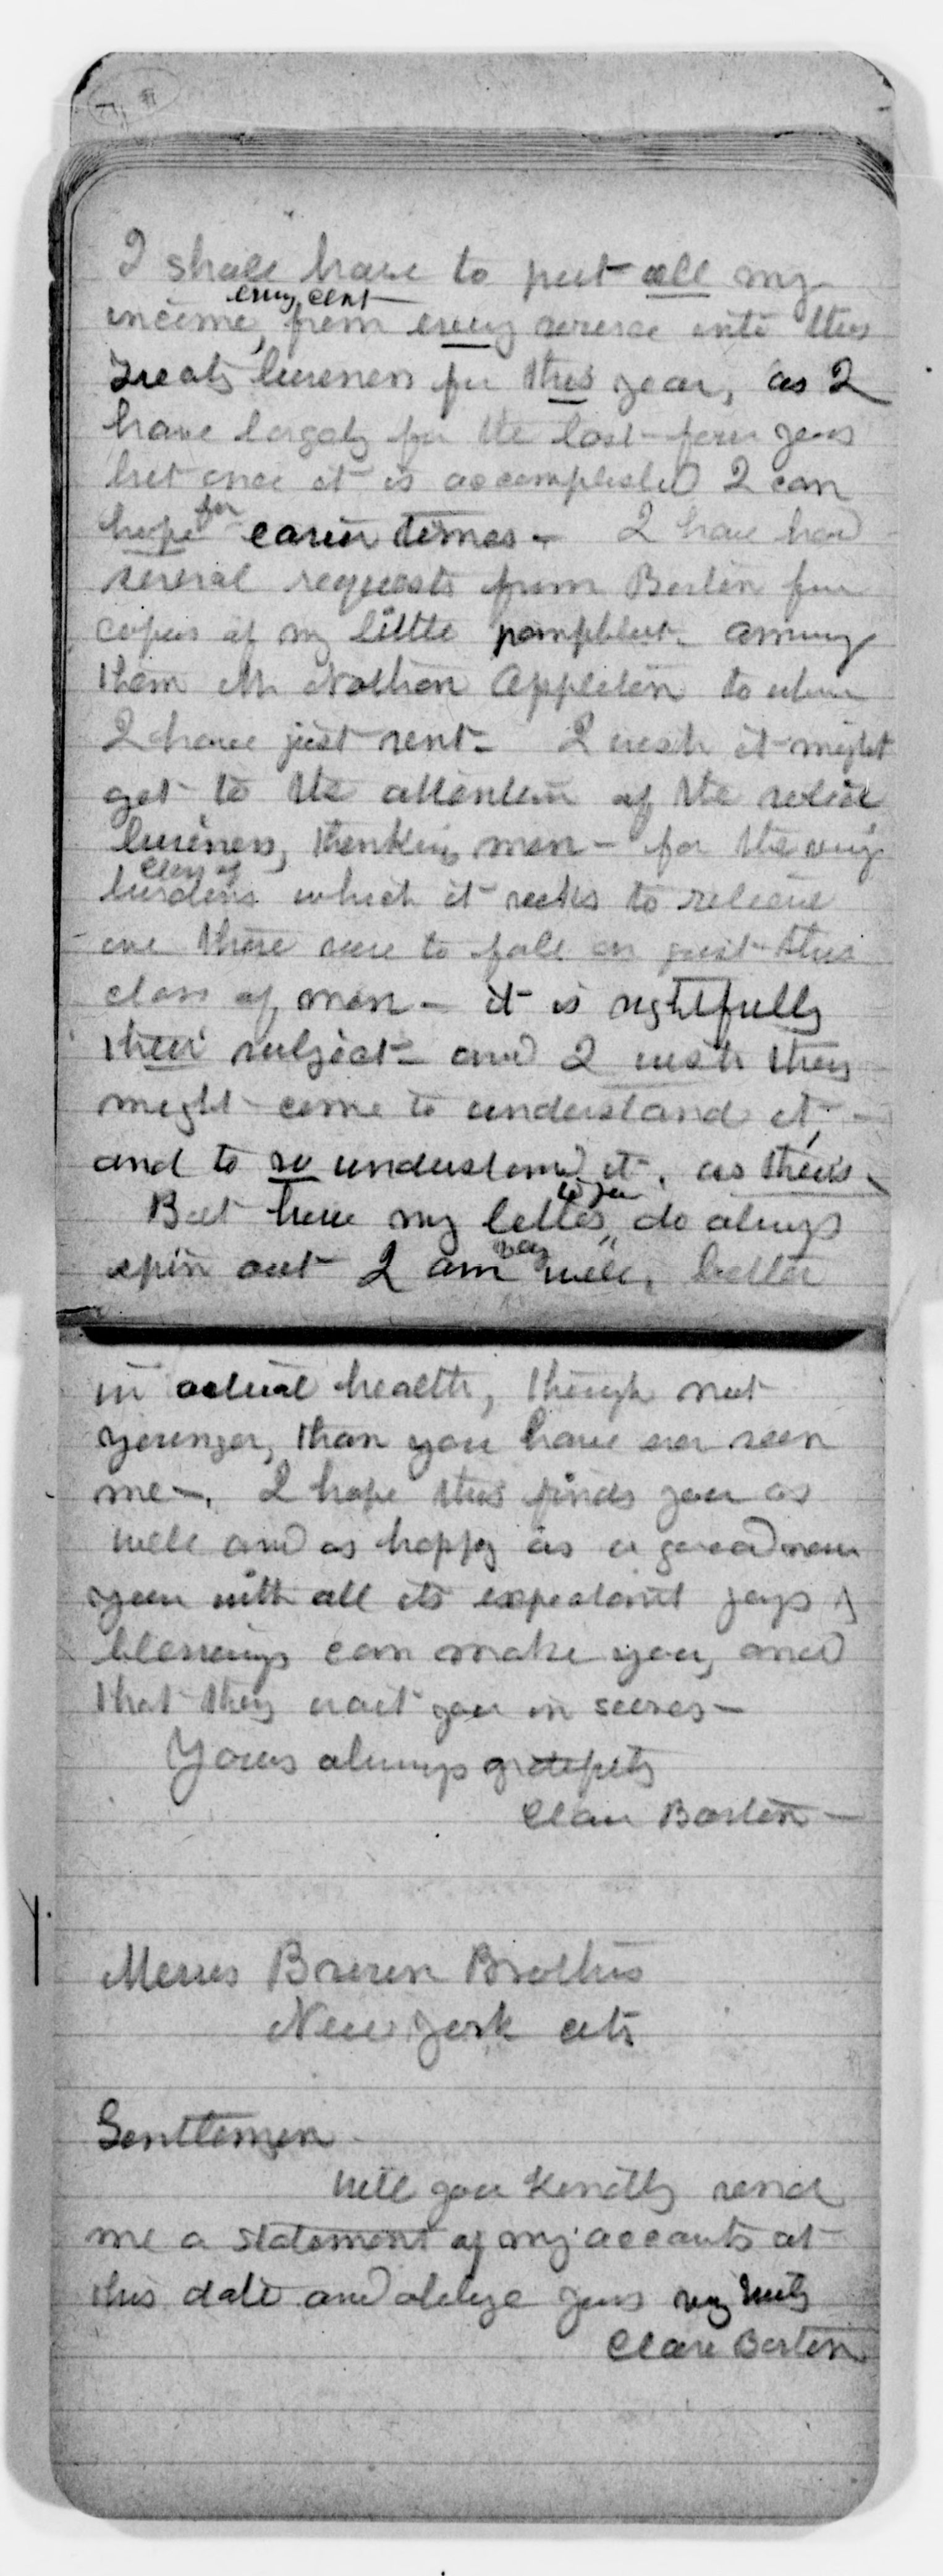 I shall have to put all my
every cent
income, from every source into this
Treaty business for this year, as I
have largely for the last four years
but once it is accomplished I can
hope for easier times - I have had
several requests from Boston for
copies of my little pamphlet. among
them Mr Nathan Appleton to whom
I have just sent - I wish it might
get to the attention of the solid
business, thinking men - for the very
class of
burdens which it seeks to relieve
are those sure to fall on just this
class of men - it is rightfully
their subject - and I wish they
might come to understand it, -
and to so understand it, as theirs.
But how my letters to you do always
spin out I am very well, better
in actual health, though not
younger, than you have ever seen
me -. I hope this finds you as
well and as happy as a good new
year with all its expectant joys &
blessings can make you, and
that they wait you in scores -
Yours always gratefully
Clara Barton -
Messrs Brown Brothers
New York city
Gentlemen
Will you kindly send
me a statement of my accounts at
this date and oblige yours very truly
Clara Barton